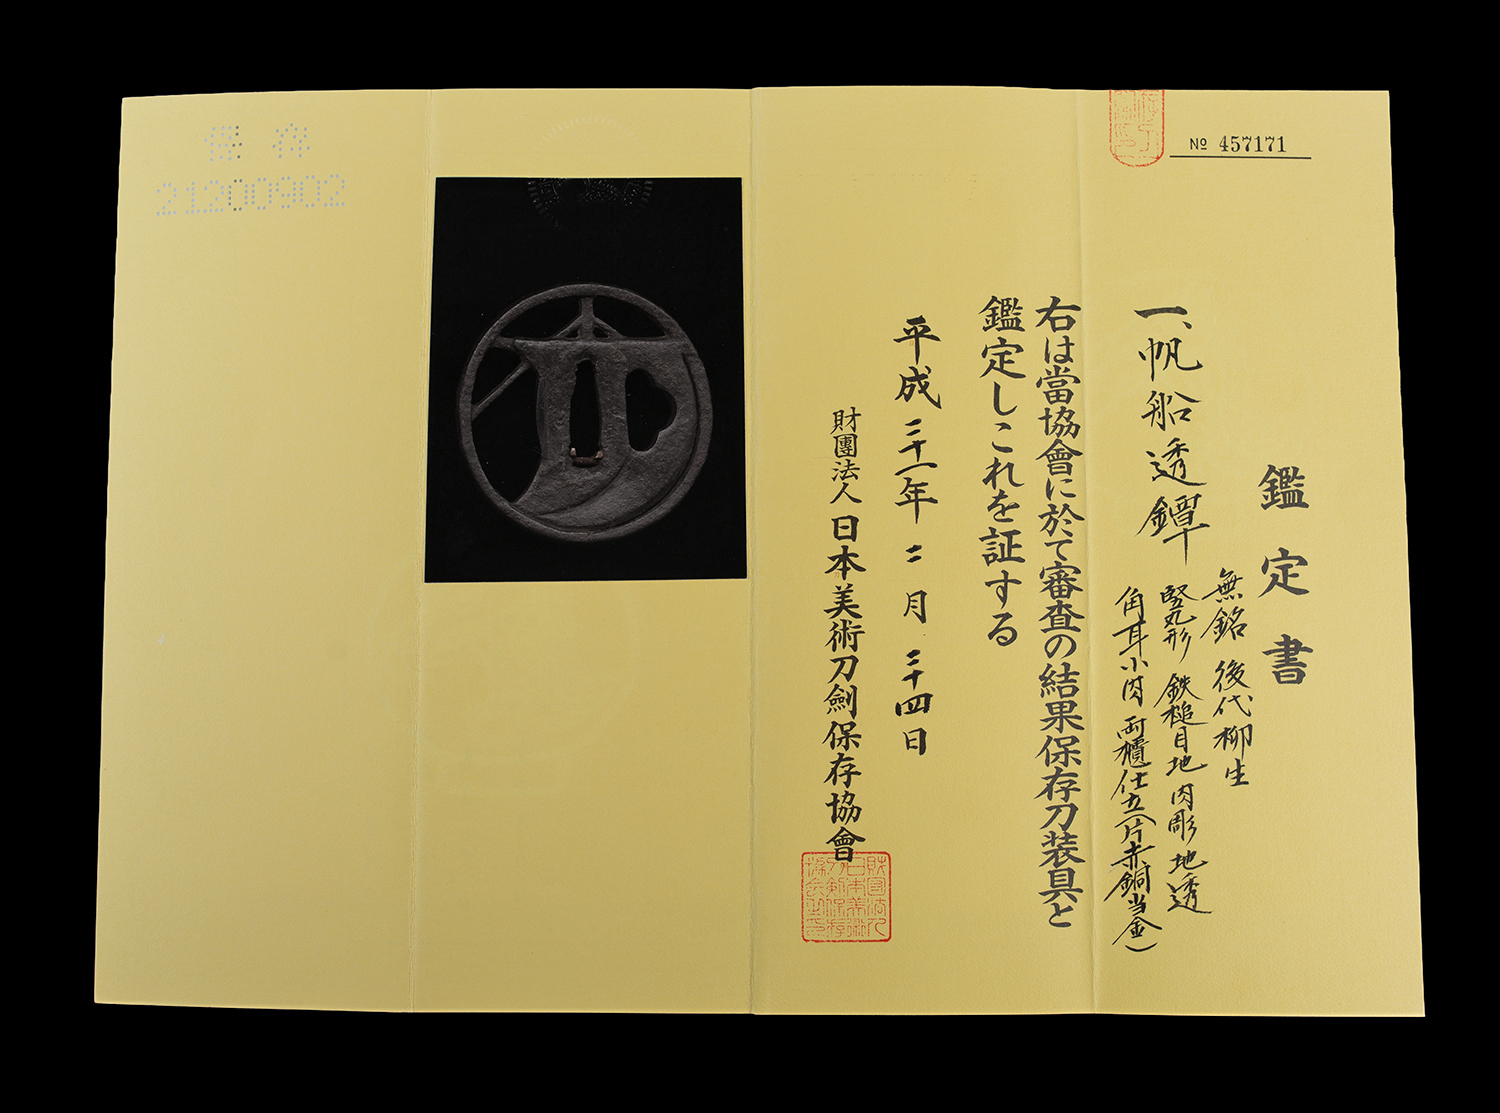 № 457171
鑑定書
一、帆船透鐔
無銘 後代柳生
竪丸形 鉄槌目地 肉彫地透
角耳小肉 両櫃仕立(片赤銅当金)
右は當協會に於て審査の結果保存刀装具と
鑑定しこれを証する
平成二十一年二月二十四日
財團法人日本美術刀劍保存協會
保存
21200902